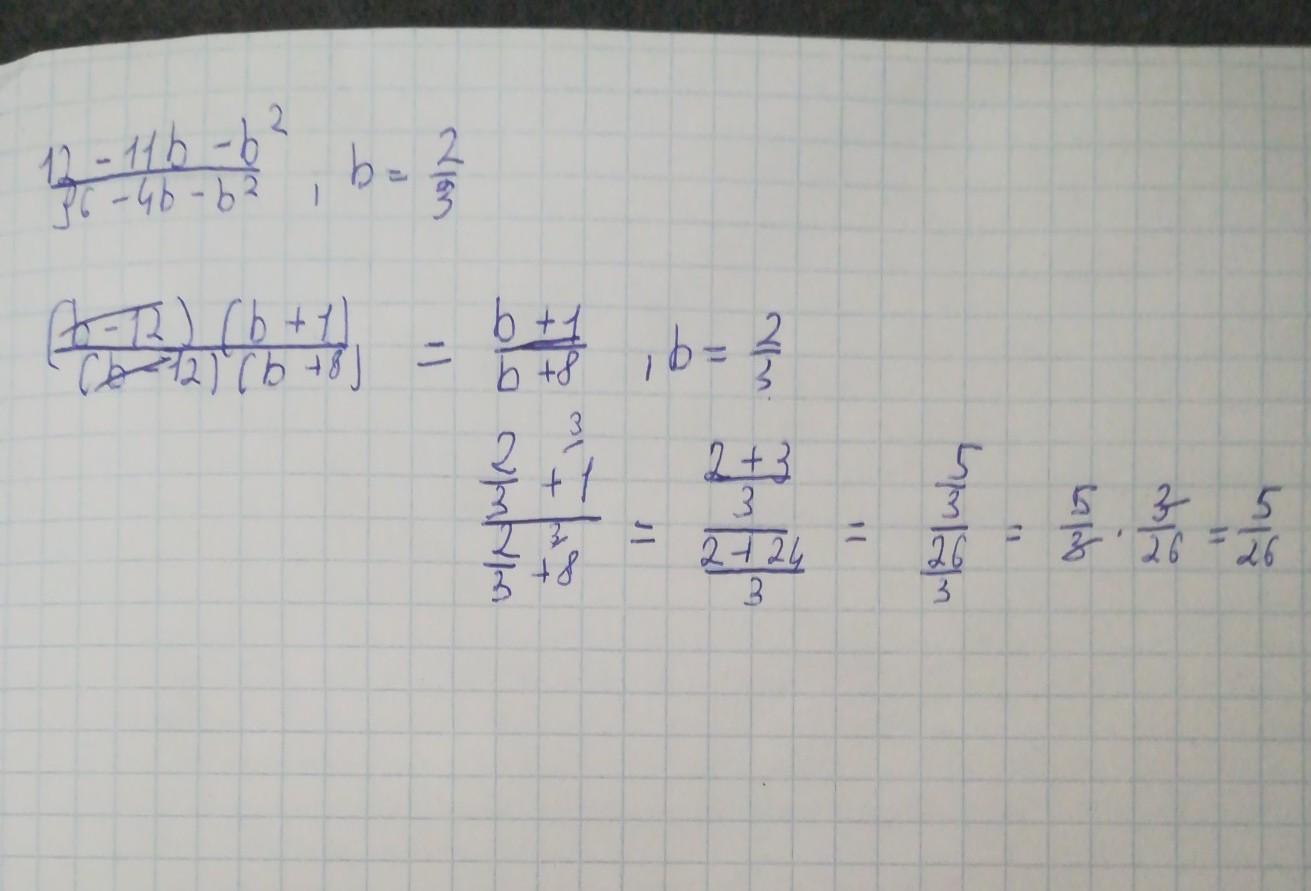 12 - 11b - b² / 96 - 4b - b² , b = 2/3
(b - 12) (b + 1) / (b - 12) (b + 8) = b + 1 / b + 8 , b = 2/3
2/3 + 1 ³ / 2/3 + 8 ³ = 2 + 3 / 3 / 2 + 24 / 3 = 5/3 / 26/3 = 5/3 · 3/26 = 5/26